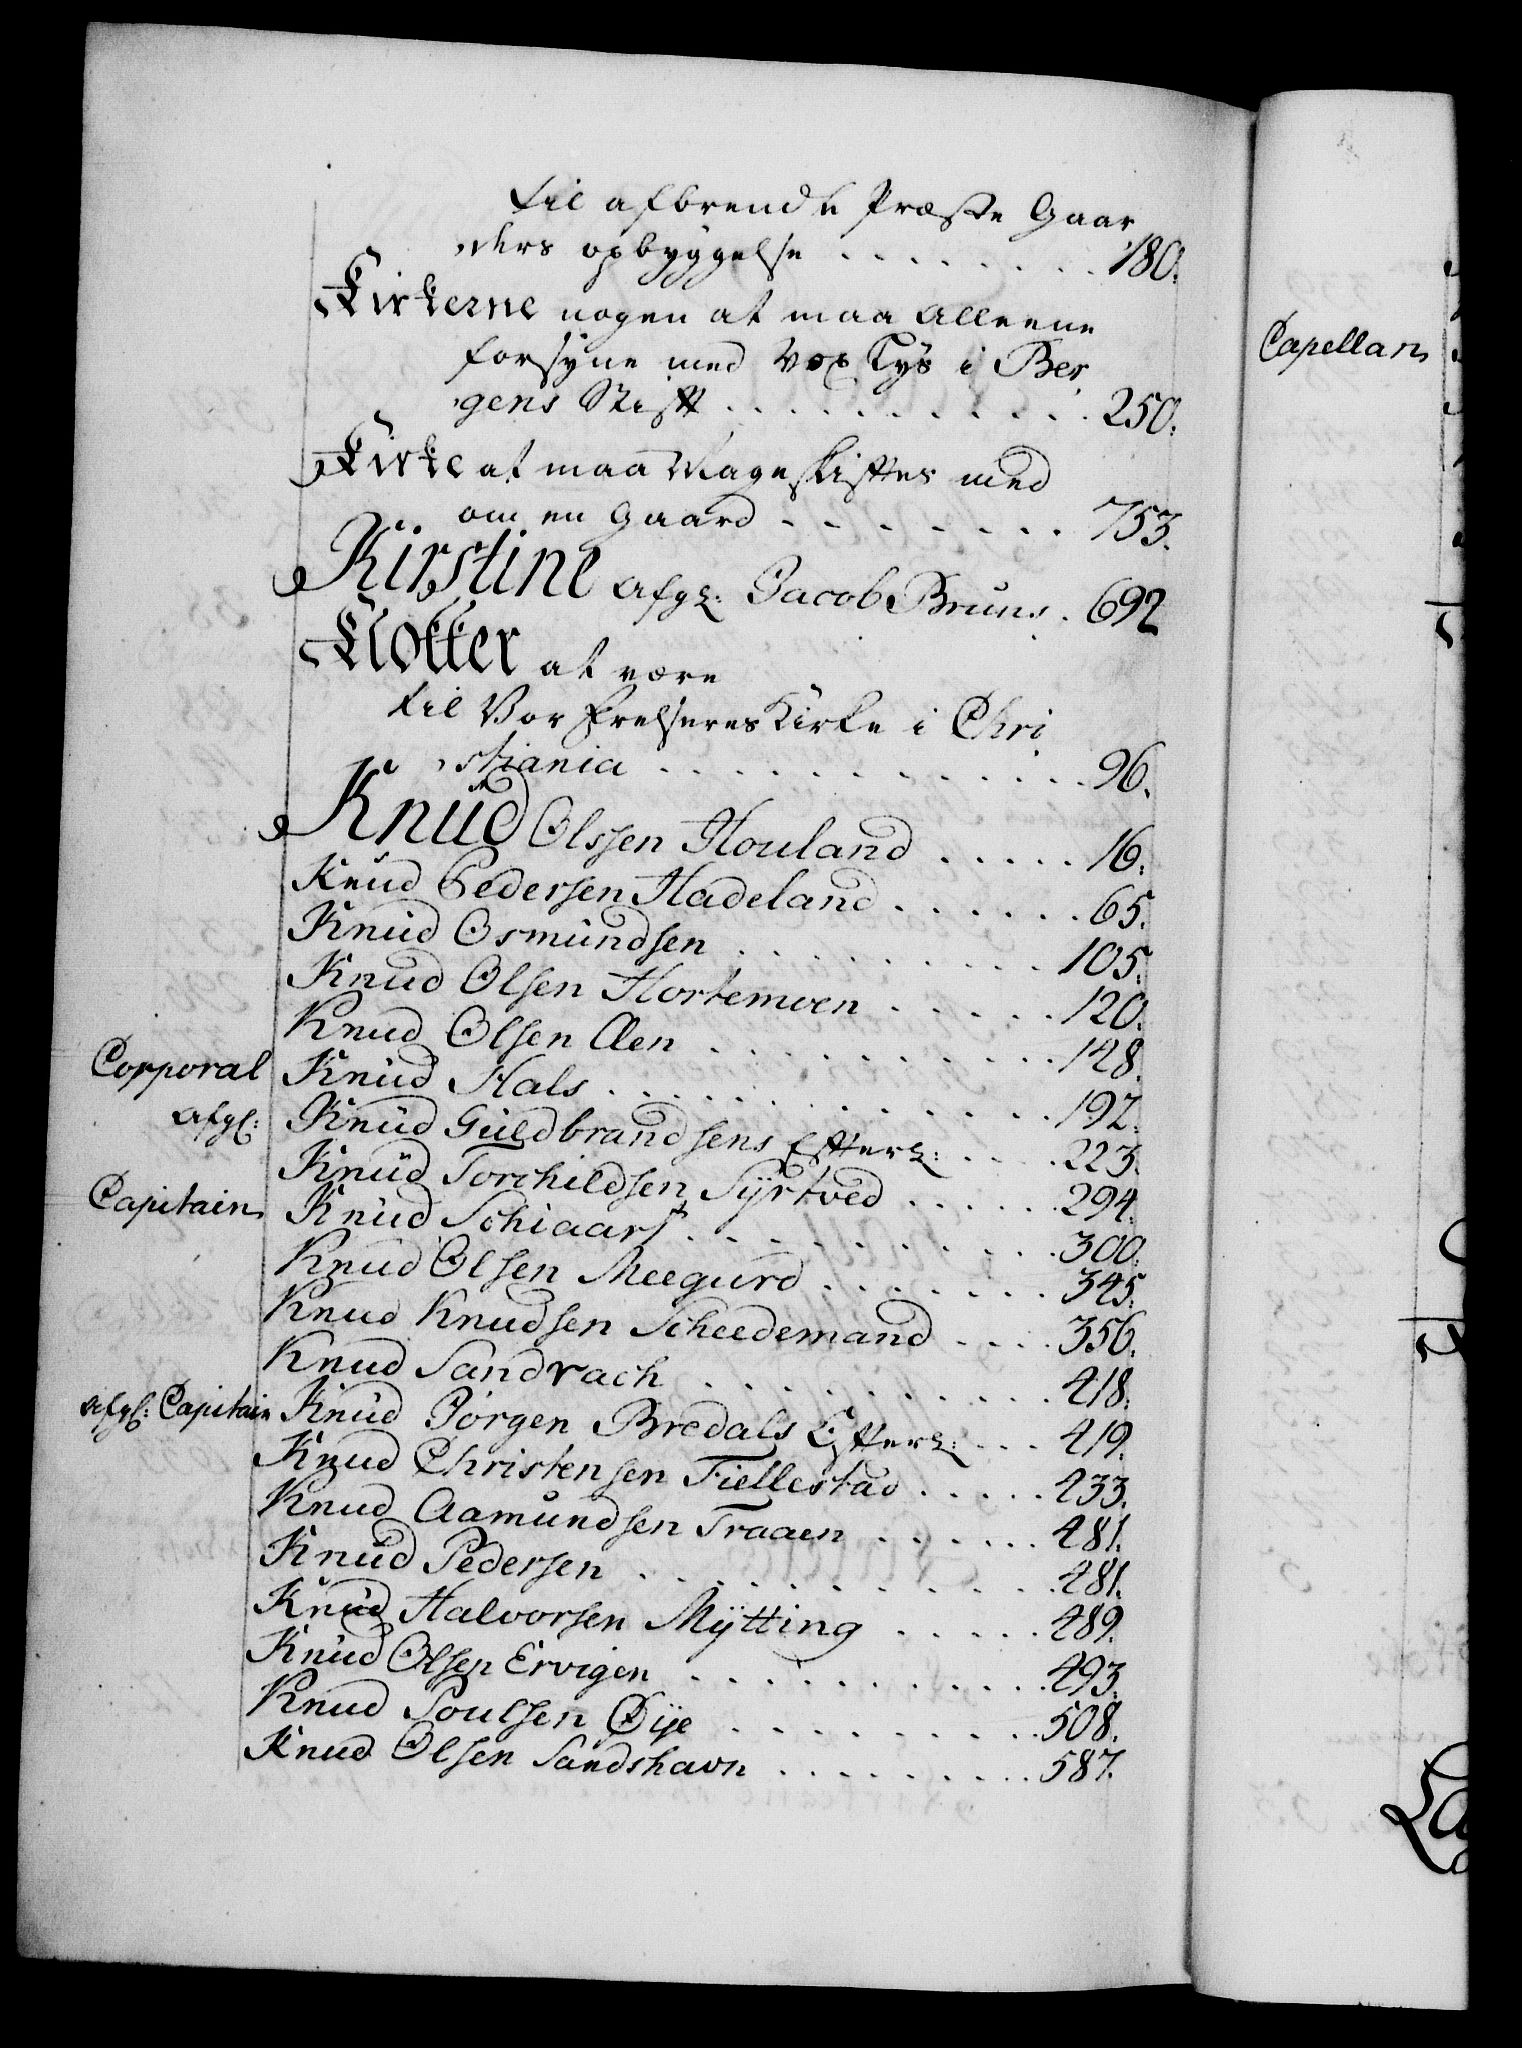 til afbrendte Præste Gaar
ders opbyggelse . . . . . . . . 180.
Kirkerne nogen at maa alleene
forsyne med Vox Lys i Ber
gens Stift . . . . . . . . . . . 250.
Kirke at maa Mageskiftes med
om en Gaard . . . . . . . 753.
Kirstine afgl: Jacob Bruns . 692
Klokker at være
til Vor Frelseres Kirke i Chri
stiania . . . . . . . . . . . . 96.
Knud Olssen Houland . . . . . 16.
Knud Pedersen Hadeland . . . . . . 65.
Knud Osmundsen . . . . . . . . . 105.
Knud Olsen Hortemoen . . . . . 120.
Knud Olsen Aen . . . . . . . . . . 128.
Corporal Knud Hals . . . . . . . . . . . . 192.
afgl: Knud Guldbrandsens Efterl: . . . . 223.
Knud Torchildsen Syrtved . . . . . . 294.
Capitain Knud Schiaart . . . . . . . . . . 300.
Knud Olsen Meegurd . . . . . . . 345.
Knud Knudsen Scheedemand . . . . 356.
Knud Sandrach . . . . . . . . . . 418.
afgl: Capitain Knud Jörgen Bredals Efterl: . . . 419.
Knud Christensen Fiellestad . . . . . 433.
Knud Aamundsen Traaen . . . . . . 481.
Knud Pedersen . . . . . . . . . . . 481.
Knud Halvorsen Mytting . . . . . 489.
Knud Olsen Ervigen . . . . . . . . . . 493.
Knud Poulsen Øye . . . . . . . . . 508.
Knud Olsen Sandshavn . . . . . . . . . 587.
Capellan